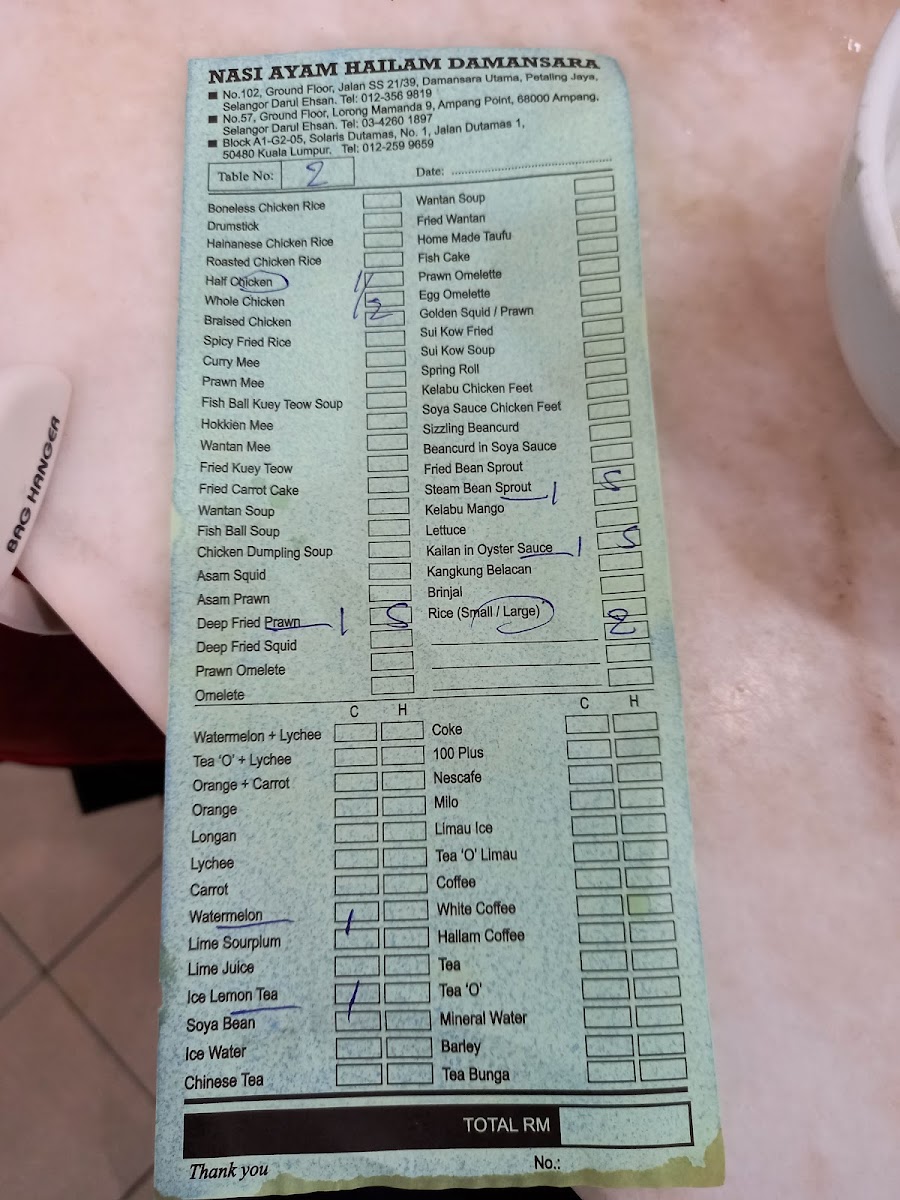 NASI AYAM HAILAM DAMANSARA
No.102, Ground Floor, Jalan SS 21/39, Damansara Utama, Petaling Jaya,
Selangor Darul Ehsan. Tel: 012-356 9819
No.57, Ground Floor, Lorong Mamanda 9, Ampang Point, 68000 Ampang.
Selangor Darul Ehsan. Tel: 03-4260 1897
Block A1-G2-05, Solaris Dutamas, No. 1, Jalan Dutamas 1,
50480 Kuala Lumpur. Tel: 012-259 9659
Table No: 2
Date:
Boneless Chicken Rice
Drumstick
Hainanese Chicken Rice
Roasted Chicken Rice
Half Chicken 1/2
Whole Chicken
Braised Chicken
Spicy Fried Rice
Curry Mee
Prawn Mee
Fish Ball Kuey Teow Soup
Hokkien Mee
Wantan Mee
Fried Kuey Teow
Fried Carrot Cake
Wantan Soup
Fish Ball Soup
Chicken Dumpling Soup
Asam Squid
Asam Prawn
Deep Fried Prawn 1 S
Deep Fried Squid
Prawn Omelete
Omelete
Wantan Soup
Fried Wantan
Home Made Taufu
Fish Cake
Prawn Omelette
Egg Omelette
Golden Squid / Prawn
Sui Kow Fried
Sui Kow Soup
Spring Roll
Kelabu Chicken Feet
Soya Sauce Chicken Feet
Sizzling Beancurd
Beancurd in Soya Sauce
Fried Bean Sprout
Steam Bean Sprout 1 S
Kelabu Mango
Lettuce
Kailan in Oyster Sauce 1 S
Kangkung Belacan
Brinjal
Rice (Small / Large) 2
C H
Watermelon + Lychee
Tea 'O' + Lychee
Orange + Carrot
Orange
Longan
Lychee
Carrot
Watermelon 1
Lime Sourplum
Lime Juice
Ice Lemon Tea 1
Soya Bean
Ice Water
Chinese Tea
C H
Coke
100 Plus
Nescafe
Milo
Limau Ice
Tea 'O' Limau
Coffee
White Coffee
Hailam Coffee
Tea
Tea 'O'
Mineral Water
Barley
Tea Bunga
TOTAL RM
Thank you
No.:
BAG HANGER